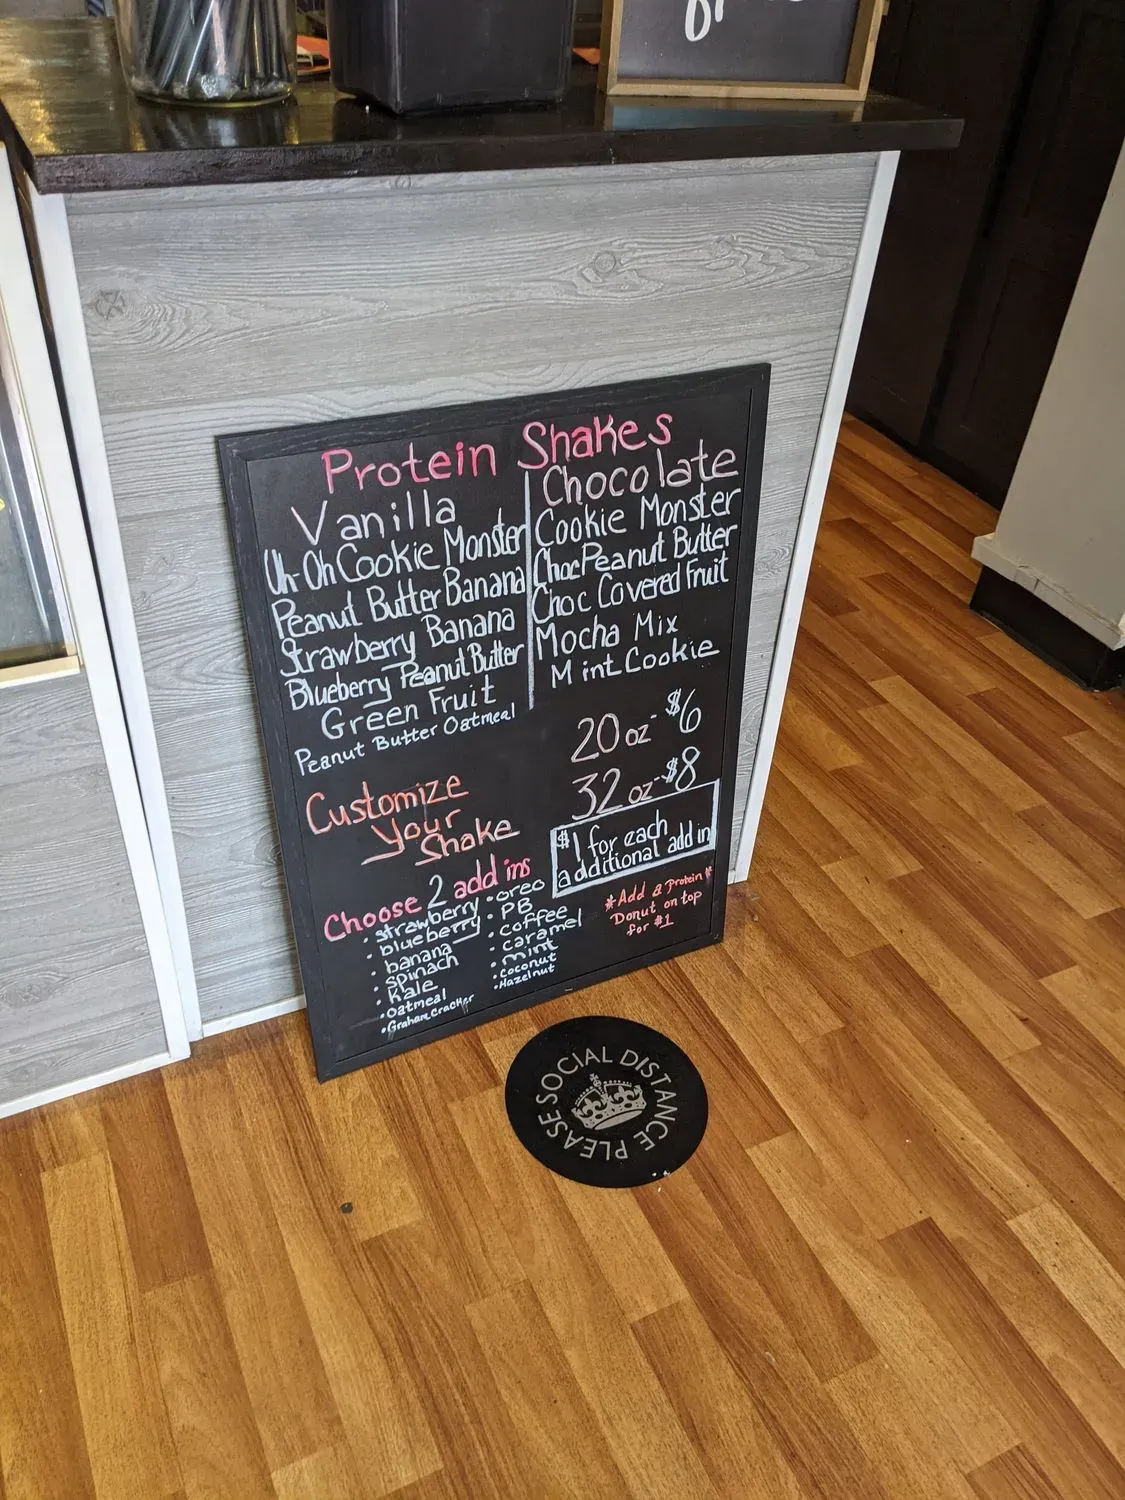 Protein Shakes
Vanilla
Uh-Oh Cookie Monster
Peanut Butter Banana
Strawberry Banana
Blueberry Peanut Butter
Green Fruit
Peanut Butter Oatmeal
Chocolate
Cookie Monster
Choc Peanut Butter
Choc Covered Fruit
Mocha Mix
Mint Cookie
20 oz - $6
32 oz - $8
$1 for each
additional add in
Customize
Your
Shake
Choose 2 add ins
• strawberry
• blueberry
• banana
• spinach
• Kale
• Oatmeal
• Graham Cracker
• oreo
• PB
• coffee
• caramel
• mint
• Coconut
• Hazelnut
*Add a Protein*
Donut on top
for $1
PLEASE SOCIAL DISTANCE